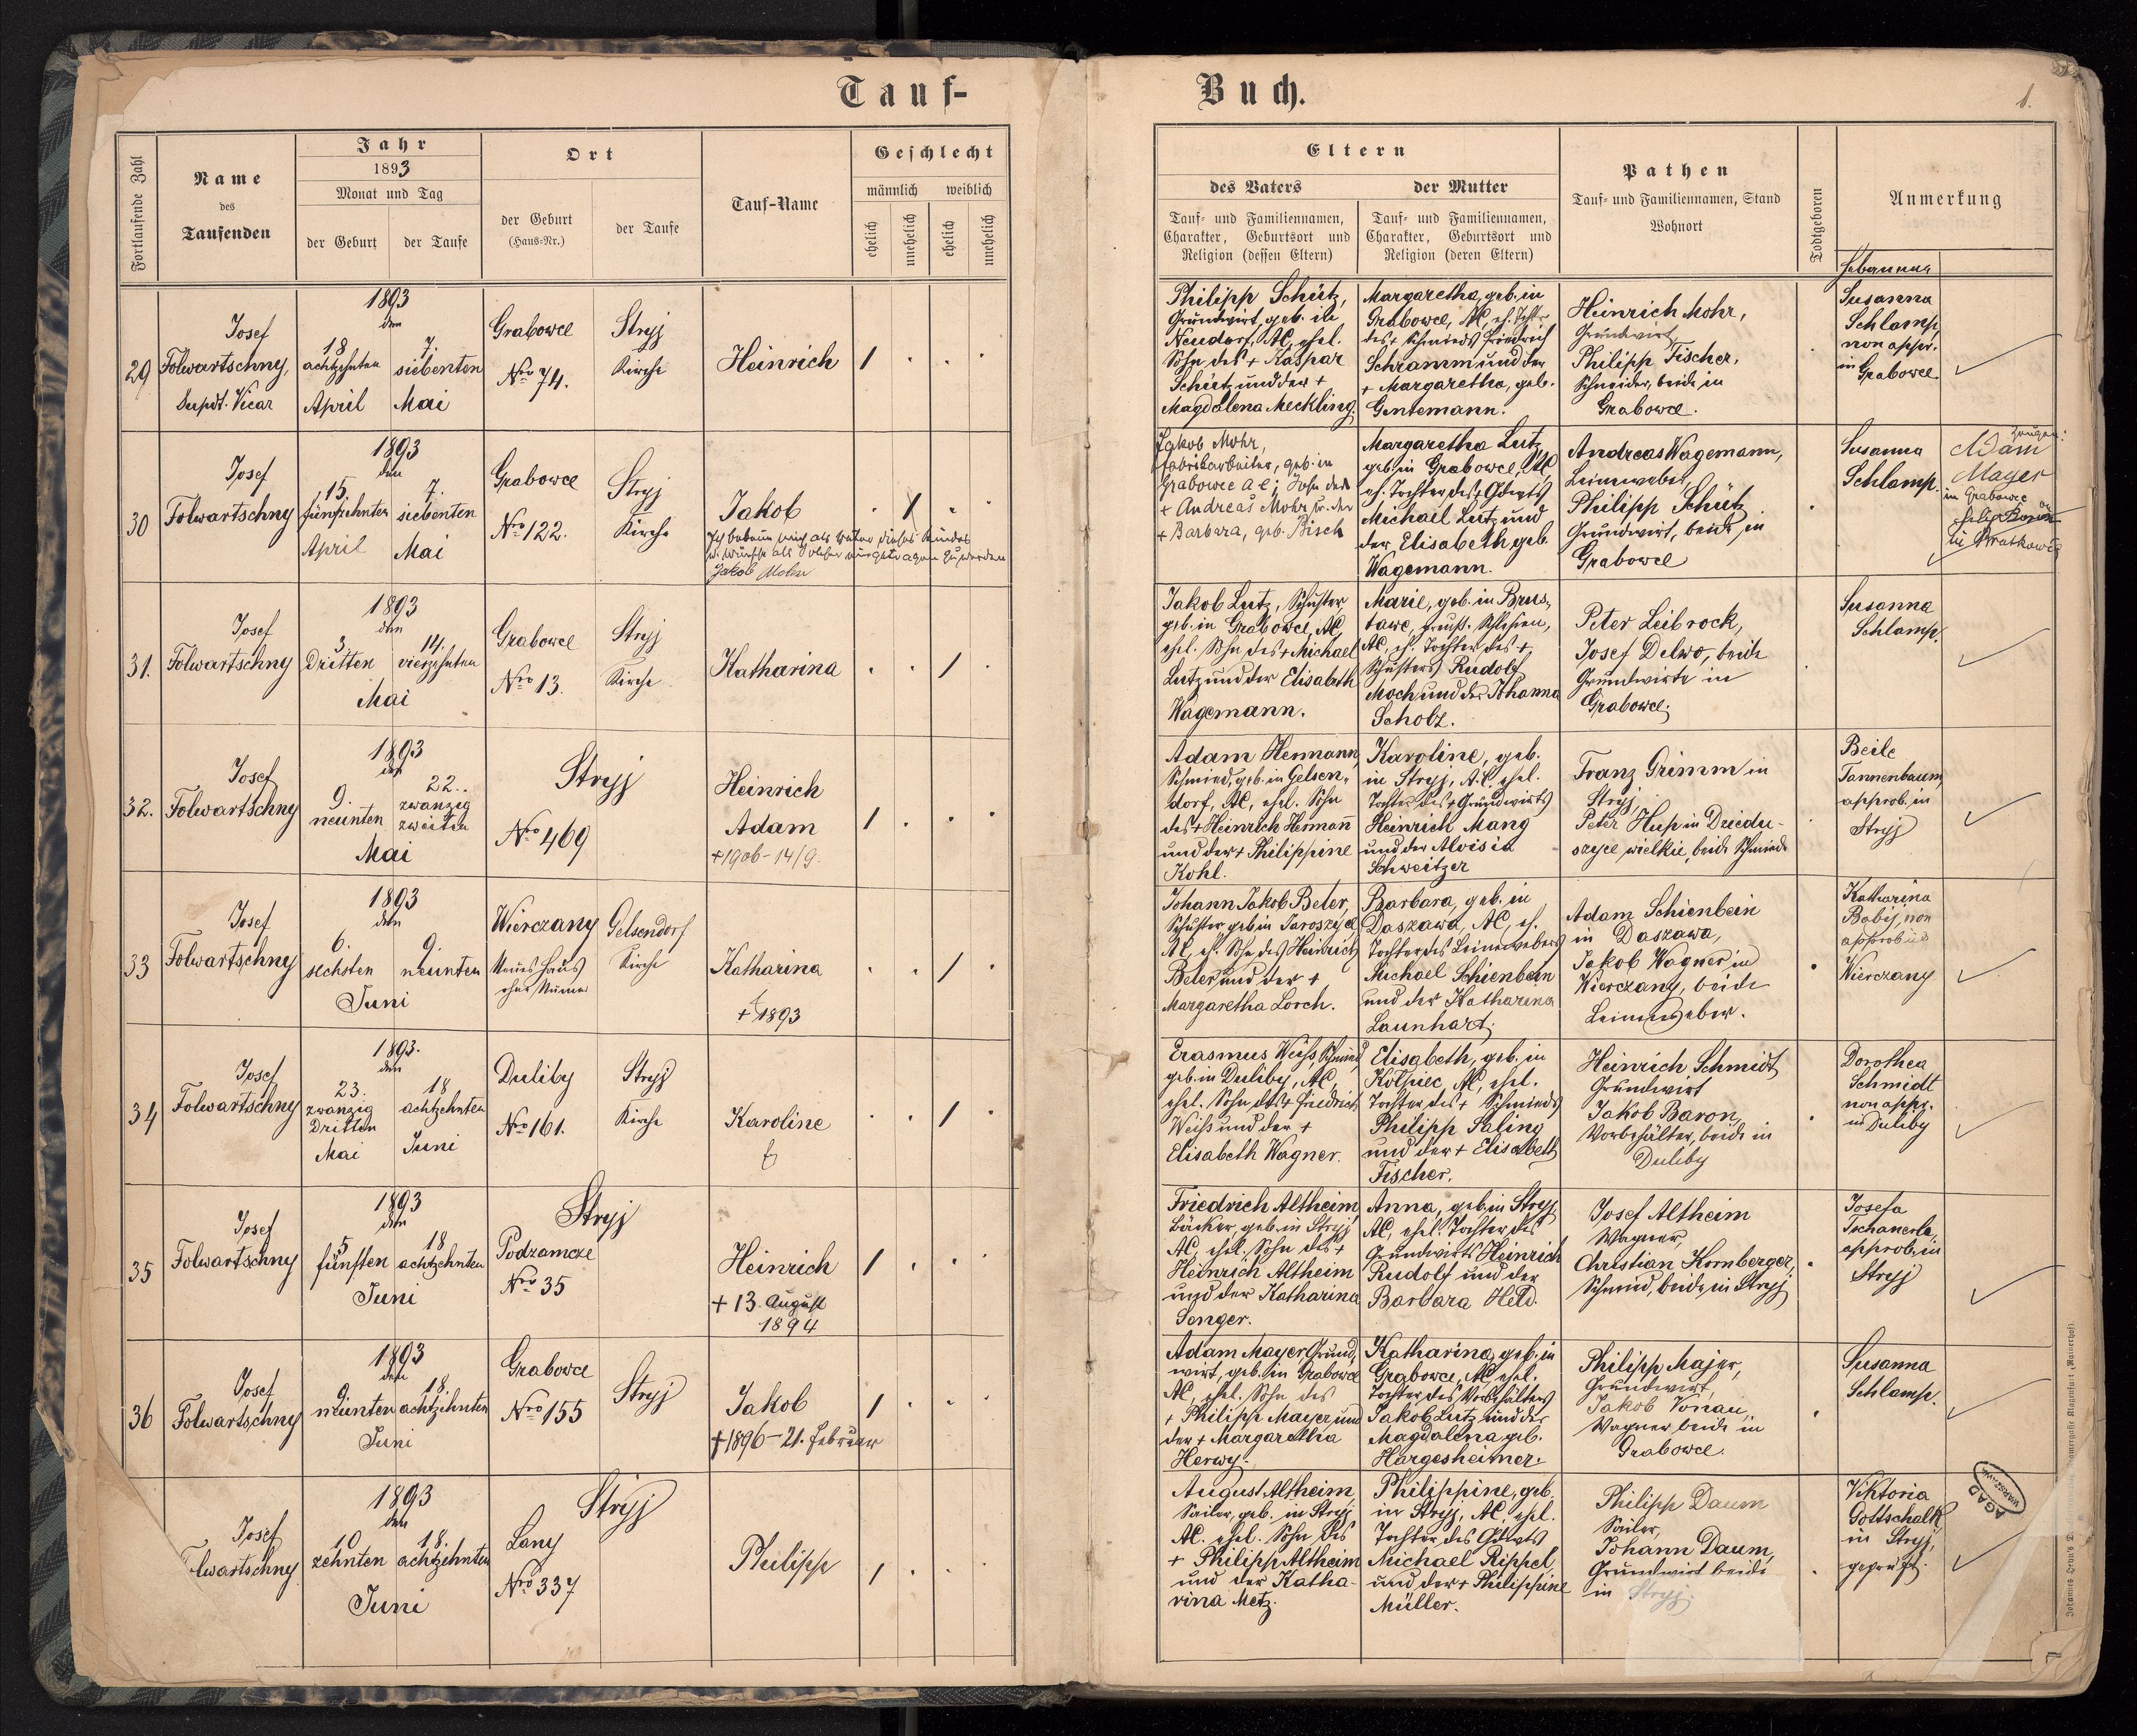 Tauf-
Buch.
1.
Fortlaufende Zahl
Name
des
Taufenden
Jahr
1893
Monat und Tag
der Geburt
der Taufe
Ort
der Geburt
(Haus-Nr.)
der Taufe
Tauf-Name
Geschlecht
männlich
weiblich
ehelich
unehelich
ehelich
unehelich
Eltern
des Vaters
der Mutter
Tauf- und Familiennamen,
Charakter, Geburtsort und
Religion (dessen Eltern)
Tauf- und Familiennamen,
Charakter, Geburtsort und
Religion (deren Eltern)
Pathen
Tauf- und Familiennamen, Stand
Wohnort
Todtgeboren
Anmerkung
Hebamme
29
Josef
Folwartschny,
Supdt. Vicar
1893
den
18
achtzehnten
April
7.
siebenten
Mai
Grabowce
Nro 74.
Stryj
Kirche
Heinrich
1
Philipp Schütz,
Grundwirt, geb. in
Neudorf, AC, ehel.
Sohn des + Kaspar
Schütz und der +
Magdalena Meckling.
Margaretha, geb. in
Grabowce, AC, eh. Tochter
des + Schmieds Friedrich
Schramm und der
+ Margaretha, geb.
Gentemann.
Heinrich Mohr,
Grundwirt,
Philipp Fischer,
Schneider, beide in
Grabowce.
Susanna
Schlamp,
non appr.
in Grabowce.
30
Josef
Folwartschny
1893
den
15.
fünfzehnten
April
7.
siebenten
Mai
Grabowce
Nro 122.
Stryj
Kirche
Jakob
Ich bekenne mich als Vater dieses Kindes
u. wünsche als solcher eingetragen zu werden
Jakob Mohr
1
Jakob Mohr,
Fabriksarbeiter, geb. in
Grabowce AC; Sohn des
+ Andreas Mohr u. der
+ Barbara, geb. Bisch
Margaretha Lutz
geb. in Grabowce, AC,
eh. Tochter des + Gdwts
Michael Lutz und
der Elisabeth geb.
Wagemann.
Andreas Wagemann,
Leinweber,
Philipp Schütz
Grundwirt, beide in
Grabowce
Susanna
Schlamp.
Zeugen:
Adam
Mayer
in Grabowce
31.
Josef
Folwartschny
1893
den
3.
Dritten
14.
vierzehnten
Mai
Grabowce
Nro 13.
Stryj
Kirche
Katharina
1
Jakob Lutz, Schuster
geb. in Grabowce, AC,
ehel. Sohn des + Michael
Lutz und der Elisabeth
Wagemann.
Marie, geb. in Brus-
tawe, preuß. Schlesien,
AC, eh. Tochter des +
Schusters Rudolf
Moch und der Johanna
Scholz.
Peter Leibrock,
Josef Delwo, beide
Grundwirte in
Grabowce.
Susanna
Schlamp.
32.
Josef
Folwartschny
1893
den
9.
neunten
22.
zwanzig
zweiten
Mai
Stryj
Nro 469
Heinrich
Adam
+ 1906 - 14/9.
1
Adam Hermann,
Schmied, geb. in Gelsen-
dorf, AC, ehel. Sohn
des + Heinrich Hermann
und der + Philippine
Kohl.
Karoline, geb.
in Stryj, A.C. ehel.
Tochter des + Grundwirts
Heinrich Mang
und der Aloisia
Schweitzer
Franz Grimm in
Stryj,
Peter Hup in Driedu-
szyce wielkie, beide Schmiede
Beile
Tannenbaum,
approb. in
Stryj
33
Josef
Folwartschny
1893
den
6.
sechsten
9.
neunten
Juni
Wierczany
Neues Haus
ohne Numer
Gelsendorf
Kirche
Katharina
+ 1893
1
Johann Jakob Beter,
Schuster geb in Jaroszyce
AC, eh. Sohn des Heinrich
Beter und der +
Margaretha Lorch.
Barbara, geb. in
Daszawa, AC, eh.
Tochter des Leinewebers
Michael Schienbein
und der Katharina
Launhart.
Adam Schienbein
in Daszawa,
Jakob Wagner in
Wierczany, beide
Leineweber.
Katharina
Babij, non
approb in
Wierczany
34
Josef
Folwartschny
1893.
den
23.
zwanzig
Dritten
Mai
18
achtzehnten
Juni
Duliby
Nro 161.
Stryj
Kirche
Karoline
1
Erasmus Weiß, Schmied,
geb. in Duliby, AC,
ehel. Sohn des + Friedrich
Weiß und der +
Elisabeth Wagner.
Elisabeth, geb. in
Kolpiec, AC, ehel.
Tochter des + Schmieds
Philipp Saling
und der + Elisabeth
Fischer.
Heinrich Schmidt
Grundwirt
Jakob Baron,
Vorbehälter, beide in
Duliby
Dorothea
Schmidt
non appr.
in Duliby
35
Josef
Folwartschny
1893
den
5
fünften
18
achtzehnten
Juni
Stryj
Podzamcze
Nro 35
Heinrich
+ 13. August
1894
1
Friedrich Altheim,
Bäcker, geb. in Stryj,
AC, ehel. Sohn des +
Heinrich Altheim
und der Katharina
Senger.
Anna, geb. in Stryj,
AC, ehel. Tochter des
Grundwirts Heinrich
Rudolf und der
Barbara Held.
Josef Altheim
Wagner,
Christian Kornberger,
Schmied, beide in Stryj
Josefa
Tschanerle,
approb. in
Stryj
36
Josef
Folwartschny
1893
den
9.
neunten
18.
achtzehnten
Juni
Grabowce
Nro 155
Stryj
Jakob
+ 1896 - 21. Februar
1
Adam Mayer, Grund-
wirt, geb. in Grabowce
AC, ehel. Sohn des
+ Philipp Mayer und
der + Margaretha
Herwy.
Katharina, geb. in
Grabowce, AC, ehel.
Tochter des Vorbehälters
Jakob Lutz und der
Magdalena geb.
Hargesheimer.
Philipp Majer,
Grundwirt,
Jakob Vonau,
Wagner beide in
Grabowce.
Susanna
Schlamp.
Josef
lwartschny
1893
den
10
zehnten
18.
achtzehnten
Juni
Stryj
Lany
Nro 337
Philipp
1
August Altheim
Sailer, geb. in Stryj
AC. ehel. Sohn des
+ Philipp Altheim
und der Katha-
rina Metz.
Philippine, geb.
in Stryj, AC, ehel.
Tochter des Gdwts
Michael Rippel
und der + Philippine
Müller.
Philipp Daum
Sailer,
Johann Daum,
Grundwirt beide
in Stryj.
Viktoria
Gottschalk
in Stryj,
geprüft.
AGAD
WARSZAWA